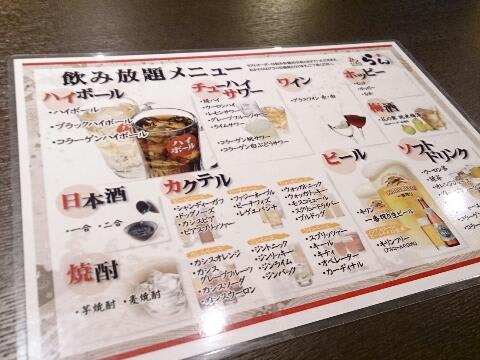 飲み放題メニュー
ハイボール
・ハイボール
・ブラックハイボール
・コラーゲンハイボール
ハイボール
チューハイ
サワー
・ウーロンハイ
・レモンサワー
・グレープフルーツサワー
・ライムサワー
ワイン
・グラスワイン 赤・白
ホッピー
梅酒
日本酒
・一合・二合
焼酎
・芋焼酎・麦焼酎
カクテル
・シャンディーガフ
・ドッグノーズ
・カシスビア
・ファジーネーブル
・ピーチフィズ
・レゲエパンチ
・ウォッカトニック
・ウォッカリッキー
・モスコミュール
・スクリュードライバー
・ブルドッグ
・カシスオレンジ
・カシス
グレープフルーツ
・カシスソーダ
・カシスウーロン
・ジントニック
・ジンリッキー
・ジンライム
・ジンバック
・スプリッツァー
・キール
・キティ
・オペレーター
・カーディナル
ビール
・キリン
一番搾り生ビール
・キリンフリー
ソフト
ドリンク
・ウーロン茶